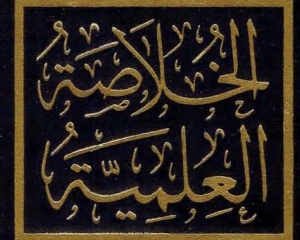 الخُلَاصَةُ
العِلمِيَّةُ